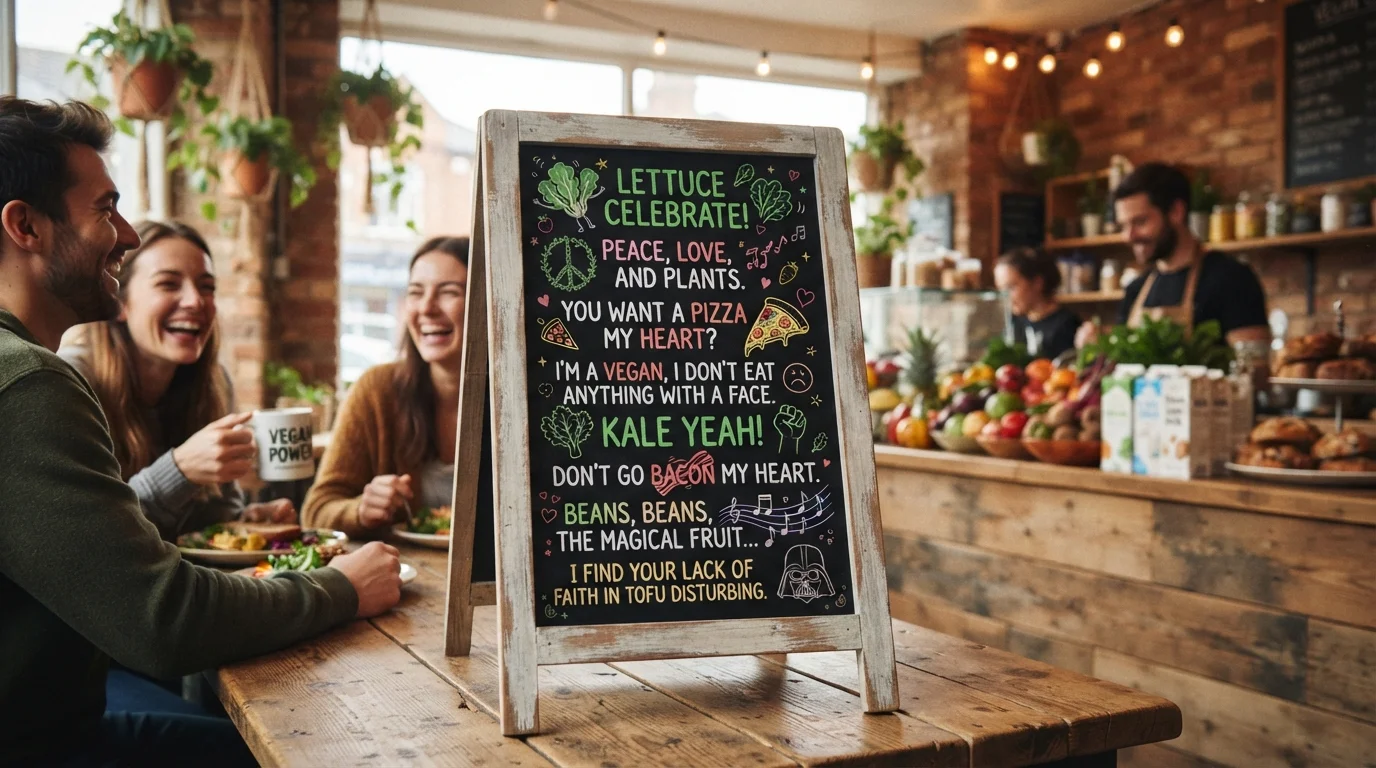 LETTUCE
CELEBRATE!
PEACE, LOVE,
AND PLANTS.
YOU WANT A PIZZA
MY HEART?
I'M A VEGAN, I DON'T EAT
ANYTHING WITH A FACE.
KALE YEAH!
DON'T GO BACON MY HEART.
BEANS, BEANS,
THE MAGICAL FRUIT...
I FIND YOUR LACK OF
FAITH IN TOFU DISTURBING.
VEGAN
POWER